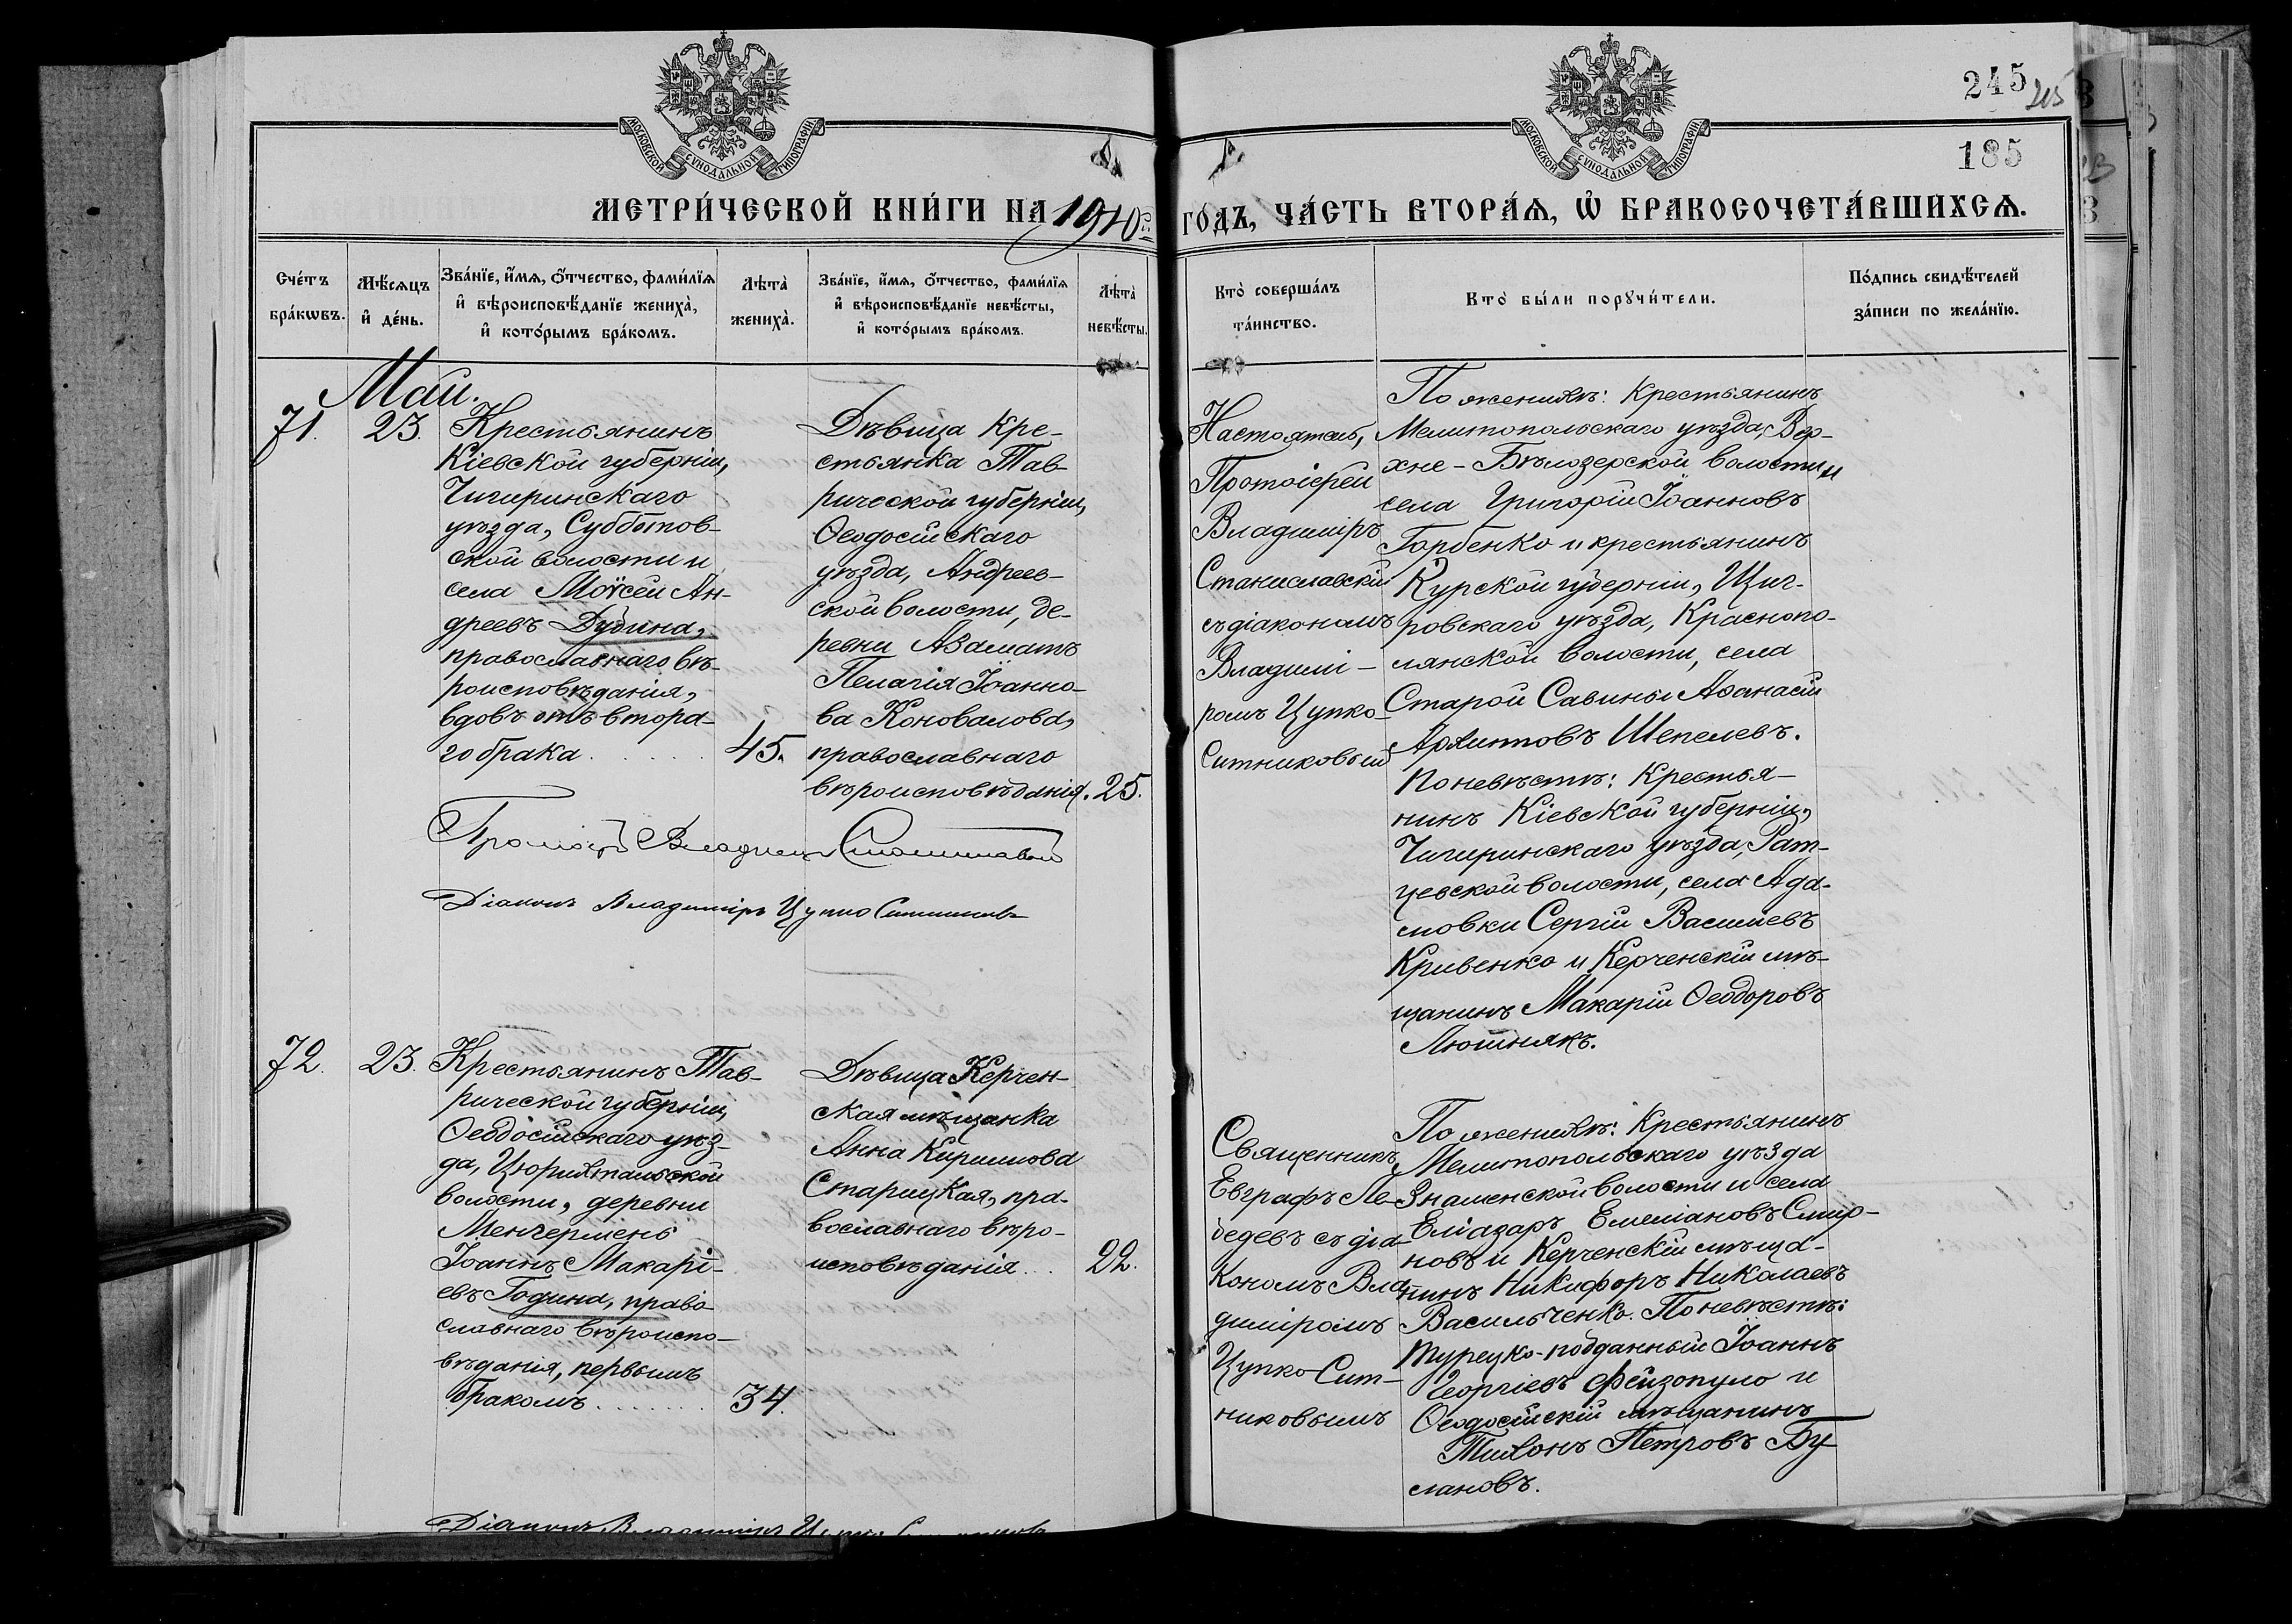 245
215
185
МОСКОВСКОЙ СѴНОДАЛЬНОЙ ТИПОГРАФІИ
МОСКОВСКОЙ СѴНОДАЛЬНОЙ ТИПОГРАФІИ
МЕТРИ́ЧЕСКОЙ КНИ́ГИ НА 1910 ГО́ДЪ, ЧА́СТЬ ВТОРА́Ѧ, Ѡ҆ БРАКОСОЧЕТА́ВШИХСѦ.
Сче́тъ
бра́кѡвъ.
Мѣ́сѧцъ
и҆ де́нь.
Зва́нїе, и҆́мѧ, ѻ҆́тчество, фами́лїѧ
и҆ вѣроисповѣ́данїе жениха̀,
и҆ кото́рымъ бра́комъ.
Лѣта̀
жениха̀.
Зва́нїе, и҆́мѧ, ѻ҆́тчество, фами́лїѧ
и҆ вѣроисповѣ́данїе невѣ́сты,
и҆ кото́рымъ бра́комъ.
Лѣта̀
невѣ́сты.
Кто̀ соверша́лъ
та́инство.
Кто̀ бы́ли порꙋчи́тели.
По́дпись свидѣ́телей
за́писи по жела́нїю.
Май.
71.
23.
Крестьянинъ
Кіевской губерніи,
Чигиринскаго
уѣзда, Субботов-
ской волости и
села Моѵсей Ан-
дреевъ Дубина,
православнаго вѣ-
роисповѣданія,
вдовъ отъ втора-
го брака . . . . . .
45.
Дѣвица кре-
стьянка Тав-
рической губерніи,
Ѳеодосійскаго
уѣзда, Андреев-
ской волости, де-
ревни Азаматъ
Пелагія Іоанно-
ва Коновалова,
православнаго
вѣроисповѣданія.
25.
Протоіерей Владиміръ Станиславскій
Діаконъ Владиміръ Цупко Ситниковъ
Настоятель,
Протоіерей
Владиміръ
Станиславскій
съ діакономъ
Владимі-
ромъ Цупко-
Ситниковымъ
По женихѣ: Крестьянинъ
Мелитопольскаго уѣзда, Вер-
хне-Бѣлозерской волости и
села Григорій Іоанновъ
Горбенко и крестьянинъ
Курской губерніи, Щиг-
ровскаго уѣзда, Краснопо-
лянской волости, села
Старой Савины Аѳанасій
Архиповъ Шепелевъ.
По невѣстѣ: Крестья-
нинъ Кіевской губерніи,
Чигиринскаго уѣзда, Рат-
цевской волости, села Ада-
мовки Сергій Василіевъ
Кривенко и Керченскій мѣ-
щанинъ Макарій Ѳеодоровъ
Лютнякъ.
72.
23.
Крестьянинъ Тав-
рической губерніи,
Ѳеодосійскаго уѣз-
да, Цюрихтальской
волости, деревни
Менгерменъ
Іоаннъ Макарі-
евъ Година, право-
славнаго вѣроиспо-
вѣданія, первымъ
бракомъ . . . . . . .
34.
Дѣвица Керчен-
ская мѣщанка
Анна Кириллова
Старицкая, пра-
вославнаго вѣро-
исповѣданія . . .
22.
Священникъ
Евграфъ Ле-
бедевъ съ діа-
кономъ Вла-
диміромъ
Цупко-Сит-
никовымъ
По женихѣ: Крестьянинъ
Мелитопольскаго уѣзда
Знаменской волости и села
Еліазаръ Емеліановъ Смир-
новъ и Керченскій мѣща-
нинъ Никифоръ Николаевъ
Васильченко. По невѣстѣ:
Турецко-подданный Іоаннъ
Георгіевъ Фейзопуло и
Ѳеодосійскій мѣщанинъ
Тихонъ Петровъ Бу-
лановъ.
Діаконъ Владиміръ Цупко Ситниковъ